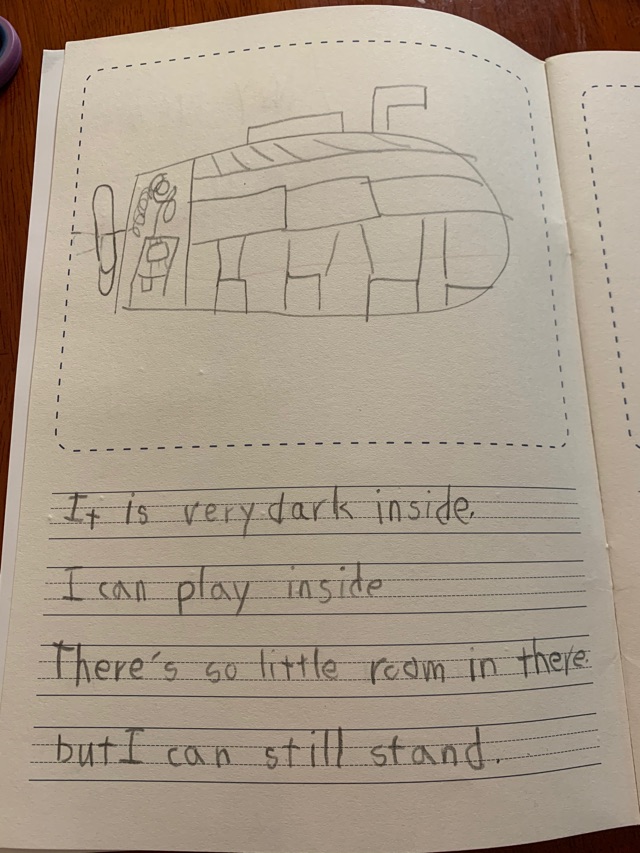 It is very dark inside.
I can play inside
There's so little room in there
but I can still stand.